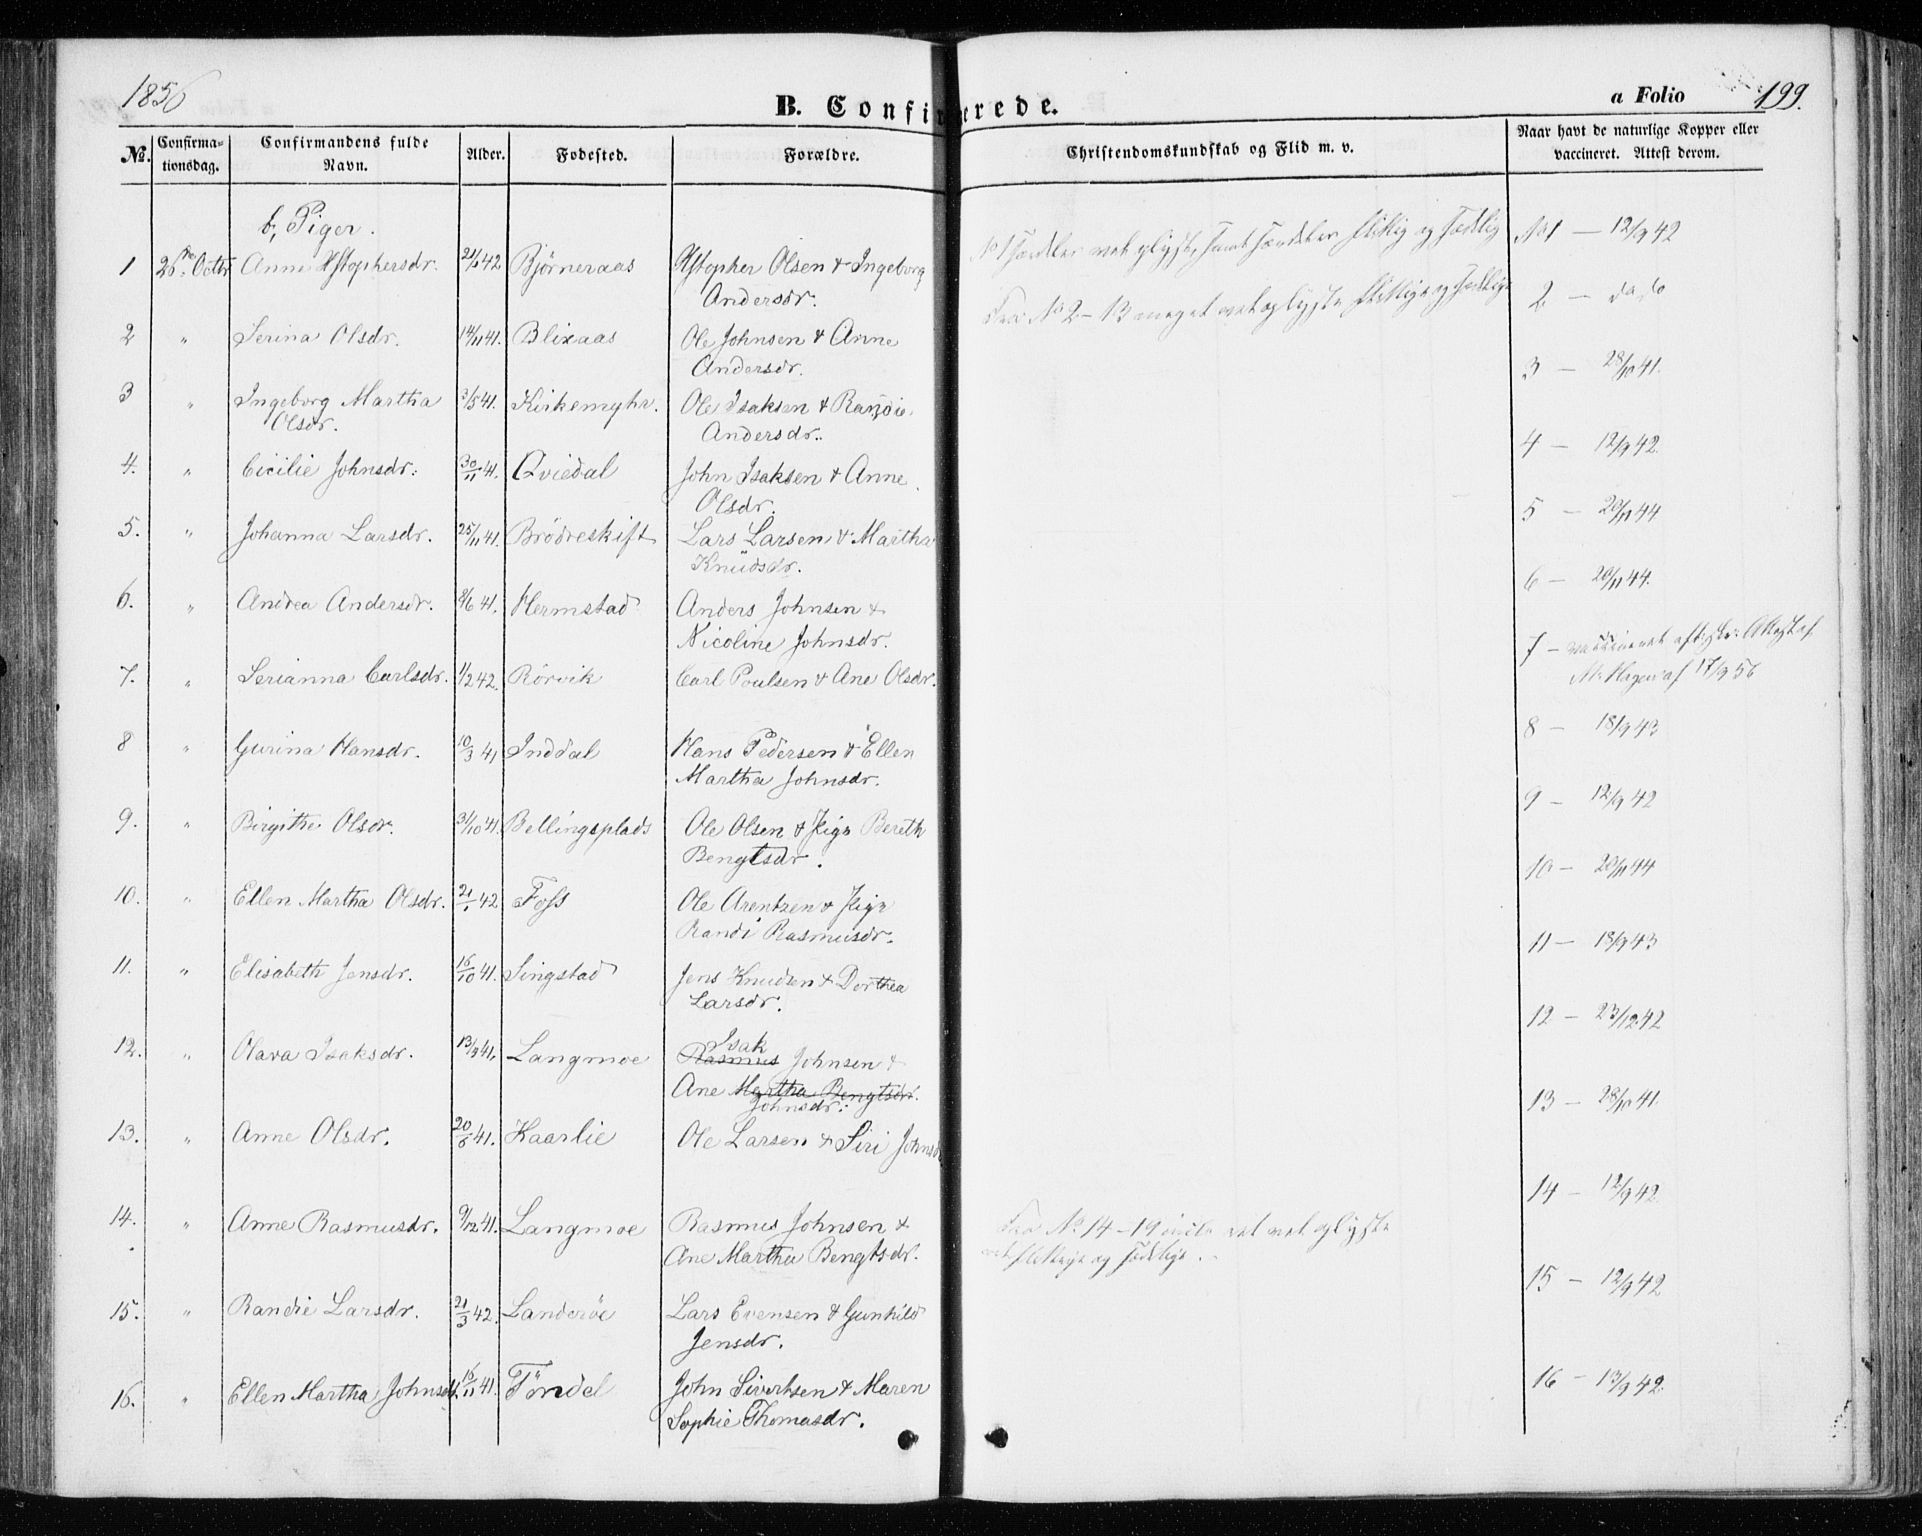 1856
B. Confirmerede.
a Folio 199.
No. Confirmationsdag. Confirmandens fulde Navn. Alder. Fødested. Forældre. Christendomskundskab og Flid m. v. Naar havt de naturlige Kopper eller vaccineret. Attest derom.
b, Piger.
1 26de Octbr Anne Xstophersdr. 21/1 42 Bjørneraas Xstopher Olsen & Ingeborg No 1 — 12/9 42
Andersdr.
2 " Serina Olsdr. 14/11 41. Blixaas Ole Johnsen & Anne 2 — do do
Andersdr.
3 " Ingeborg Martha 3/5 41. Kirkemyhr. Ole Isaksen & Randie 3 — 28/10 41.
Olsdr. Andersdr.
4. " Cicilie Johnsdr. 30/11 41. Qviedal John Isaksen & Anne 4 — 12/9 42.
Olsdr.
5. " Johanna Larsdr. 25/11 41. Brödreskift Lars Larsen & Martha 5 — 20/11 44
Knüdsdr.
6. " Andrea Andersdr. 8/6 41. Hermstad Anders Johnsen & 6 — 20/11 44.
Nicoline Johnsdr.
7. " Serianna Carlsdr. 1/2 42. Rörvik Carl Poulsen & Ane Olsdr. 7 — vaccineret Attest af
17/9 56
8 " Gurina Hansdr. 10/3 41 Inddal Hans Pedersen & Ellen 8 — 18/9 43
Martha Johnsdr.
9. " Birgithe Olsdr. 31/10 41. Bellingsplads Ole Olsen & Pige Bereth 9 — 12/9 42
Bengtsdr.
10. " Ellen Martha Olsdr. 21/1 42 Foss Ole Arentzen & Pige 10 — 20/11 44
Randi Rasmusdr.
11. " Elisabeth Jensdr. 16/10 41. Singstad Jens Knudsen & Dorthea 11 — 18/9 43
Larsdr.
12. " Olava Isaksdr. 13/9 41. Langmoe Isak 12 — 23/12 42
Rasmus Johnsen &
Ane Martha Bengtsdr.
Johnsdr. 13 — 28/10 41.
13. " Anne Olsdr. 20/6 41. Kaarlie Ole Larsen & Siri Johnsdr
14. " Anne Rasmusdr. 9/12 41. Langmoe Rasmus Johnsen & 14 — 12/9 42.
Ane Martha Bengtsdr.
15. " Randie Larsdr. 21/3 42. Landeröe Lars Evensen & Gunhild 15 — 12/9 42
Jensdr.
16. " Ellen Martha Johnsdr. 16/11 41. Töndel John Sivertsen & Maren 16 — 13/9 42.
Sophie Thomasdr.
No 1
Fra No 2 – 13 meget
Fra No 14 – 19
og